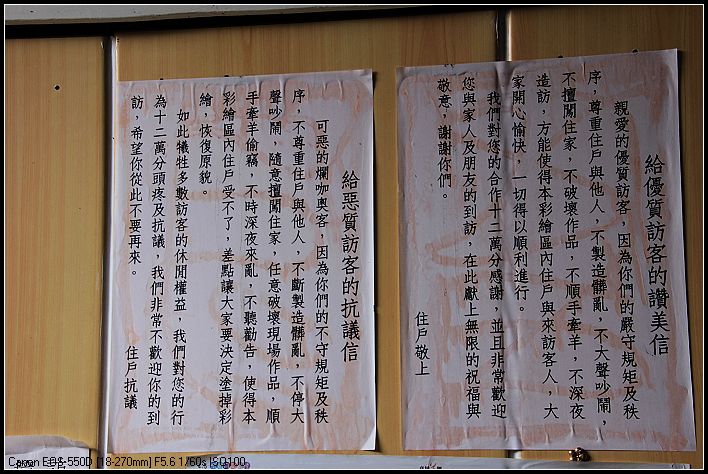 給優質訪客的讚美信
親愛的優質訪客，因為你們的嚴守規矩及秩
序，尊重住戶與他人，不製造髒亂，不大聲吵鬧，
不擅闖住家，不破壞作品，不順手牽羊，不深夜
造訪，方能使得本彩繪區內住戶與來訪客人，大
家開心愉快，一切得以順利進行。
我們對您的合作十二萬分感謝，並且非常歡迎
您與家人及朋友的到訪，在此獻上無限的祝福與
敬意，謝謝你們。
住戶敬上
給惡質訪客的抗議信
可惡的爛咖奧客，因為你們的不守規矩及秩
序，不尊重住戶與他人，不斷製造髒亂，不停大
聲吵鬧，隨意擅闖住家，任意破壞現場作品，順
手牽羊偷竊，不時深夜來亂，不聽勸告，使得本
彩繪區內住戶受不了，差點讓大家要決定塗掉彩
繪，恢復原貌。
如此犧牲多數訪客的休閒權益，我們對您的行
為十二萬分頭疼及抗議，我們非常不歡迎你的到
訪，希望你從此不要再來。
住戶抗議
Canon EOS 550D [18-270mm] F5.6 1/60s ISO100